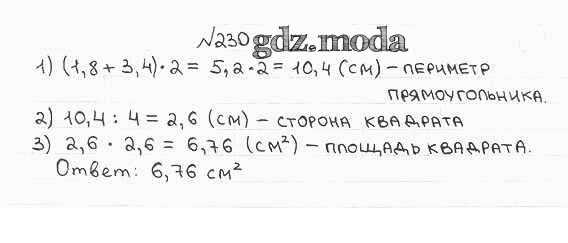 №230 gdz.moda
1) (1,8 + 3,4) · 2 = 5,2 · 2 = 10,4 (см) – ПЕРИМЕТР
ПРЯМОУГОЛЬНИКА.
2) 10,4 : 4 = 2,6 (см) – СТОРОНА КВАДРАТА
3) 2,6 · 2,6 = 6,76 (см²) – ПЛОЩАДЬ КВАДРАТА.
Ответ: 6,76 см²